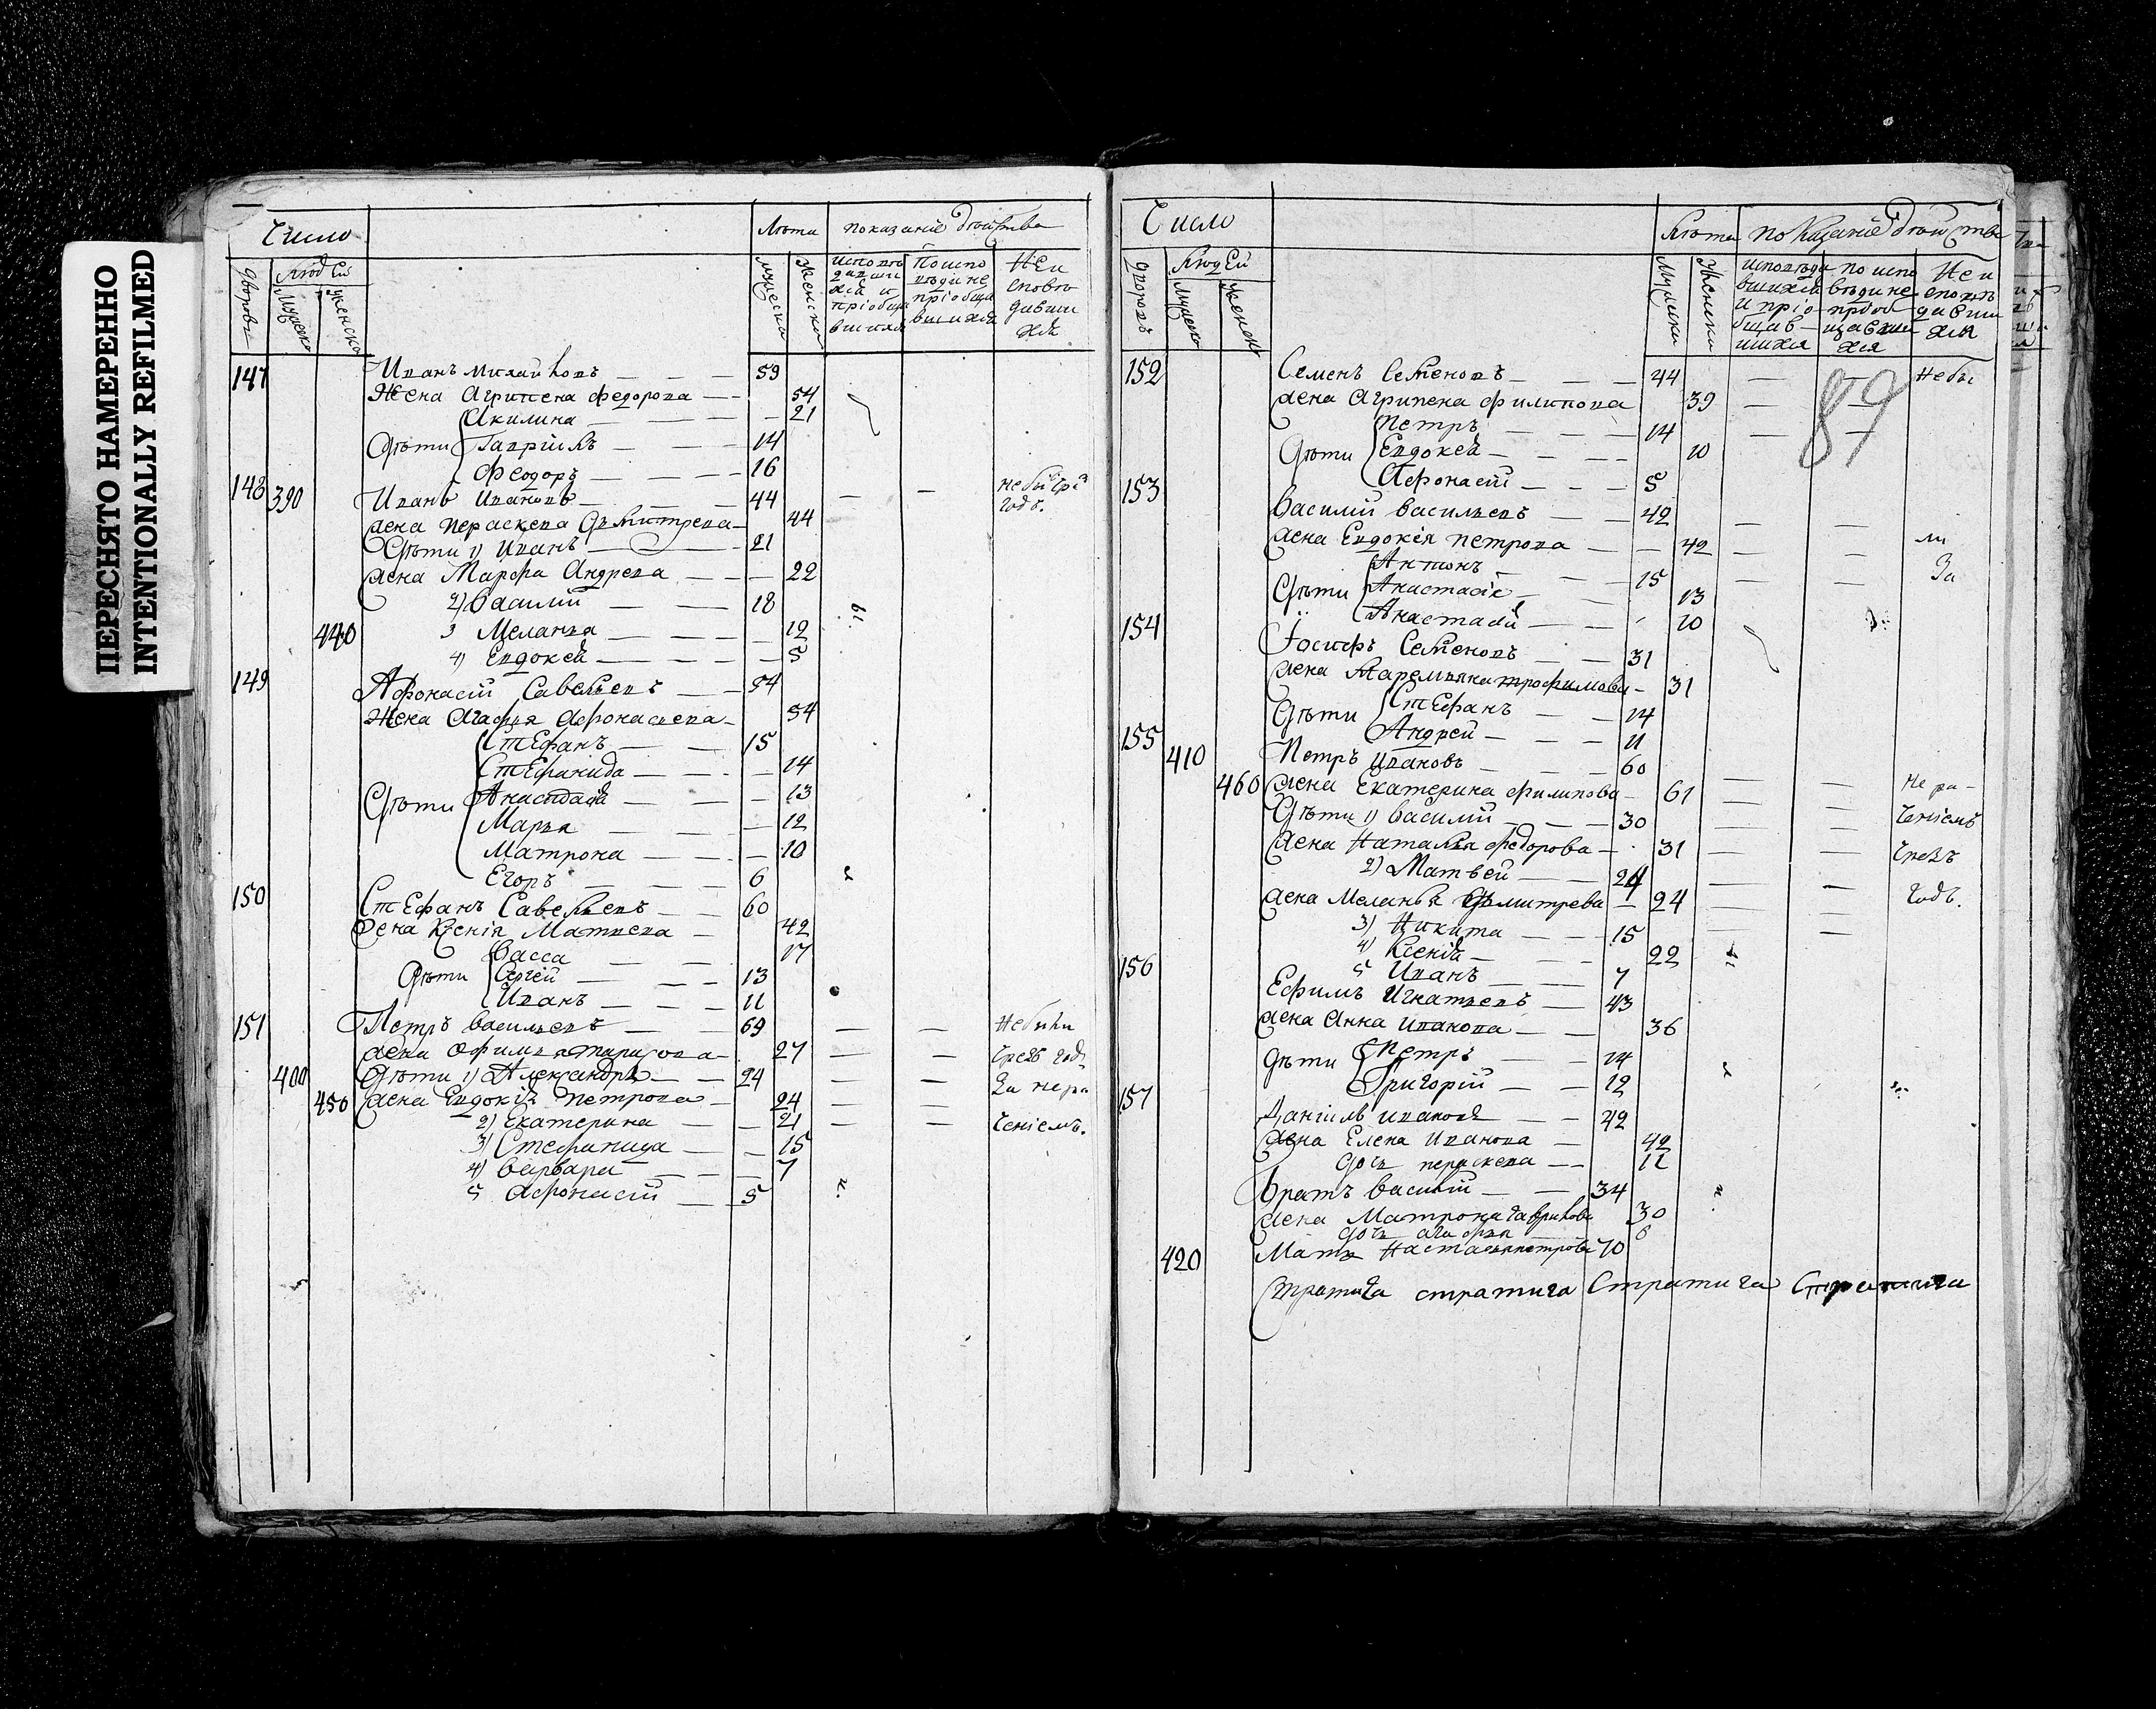 ПЕРЕСНЯТО НАМЕРЕННО
INTENTIONALLY REFILMED
Число Лѣта показание действа
дворовъ Людей мужеска женска мужеска женска
Исповѣдавшихся и приобщавшихся
По исповѣди не приобщавшихся
Не исповѣдавшихся
147 Иванъ Михайловъ 59
Жена Агрипена Федорова 54
Акилина 21
Дѣти Гаврiилъ 14
Феодоръ 16
148 390 Иванъ Ивановъ 44
жена Параскева Дъмитрева 44
Дѣти 1) Иванъ 21
жена Марфа Андрева 22
2) Василий 18
440 3 Меланья 12
4) Евдокея 5
149 Афонасий Савельевъ 54
Жена Агафья Афонасьева 54
Стефанъ 15
Стефанида 14
Дѣти Анастасия 13
Марья 12
Матрона 10
Егоръ 6
150 Стефанъ Савельевъ 60
Жена Ксения Матвева 42
Васса 17
Дѣти Сергей 13
Иванъ 11
151 Петръ Васильевъ 69 небыли
жена Офимья 27 чрезъ годъ
400 Дѣти 1) Александръ 24 За нера
450 жена Евдокiя Петрова 24
2) Екатерина 21 ченiемъ.
3) Стефанида 15
4) Варвара 7
5 Афонасий 5
Число Лѣта показание действа
дворовъ Людей мужеска женска мужеска женска
Исповѣдавшихся и приобщавшихся
по исповѣди не приобщавшихся
Не исповѣдавшихся
89
152 Семенъ Семеновъ 44 небы
жена Агрипена Филипова 39
Петръ 14
Дѣти Евдокея 10
Афонасий 5
153 Василий Васильевъ 42
жена Евдокiя Петрова 42 ли
Антонъ 15 За
Дѣти Анастасiя 13
Анастасия 10
154 Iосифъ Семеновъ 31
жена Маремьяна трофимова 31
Дѣти Стефанъ 14
Андрей 11
155 410 Петръ Ивановъ 60
460 жена Екатерина Филипова 61 Не ра-
Дѣти 1) Василий 30 ченiемъ
жена Наталья Федорова 31 чрезъ
2) Матвей 24
жена Меланья Дъмитрева 24 годъ.
3) Никита 15
4) Ксения 22
5 Иванъ 7
156 Ефимъ Игнатьевъ 43
жена Анна Иванова 36
Дѣти Петръ 14
Григорий 12
157 Данiилъ Ивановъ 42
жена Елена Иванова 42
дочь параскева 11
Братъ Василий 34
жена Матрона Гаврилова 30
дочь Агафья 6
420 Мать Настасья петрова 70
Стратига стратига Стратига Стратига